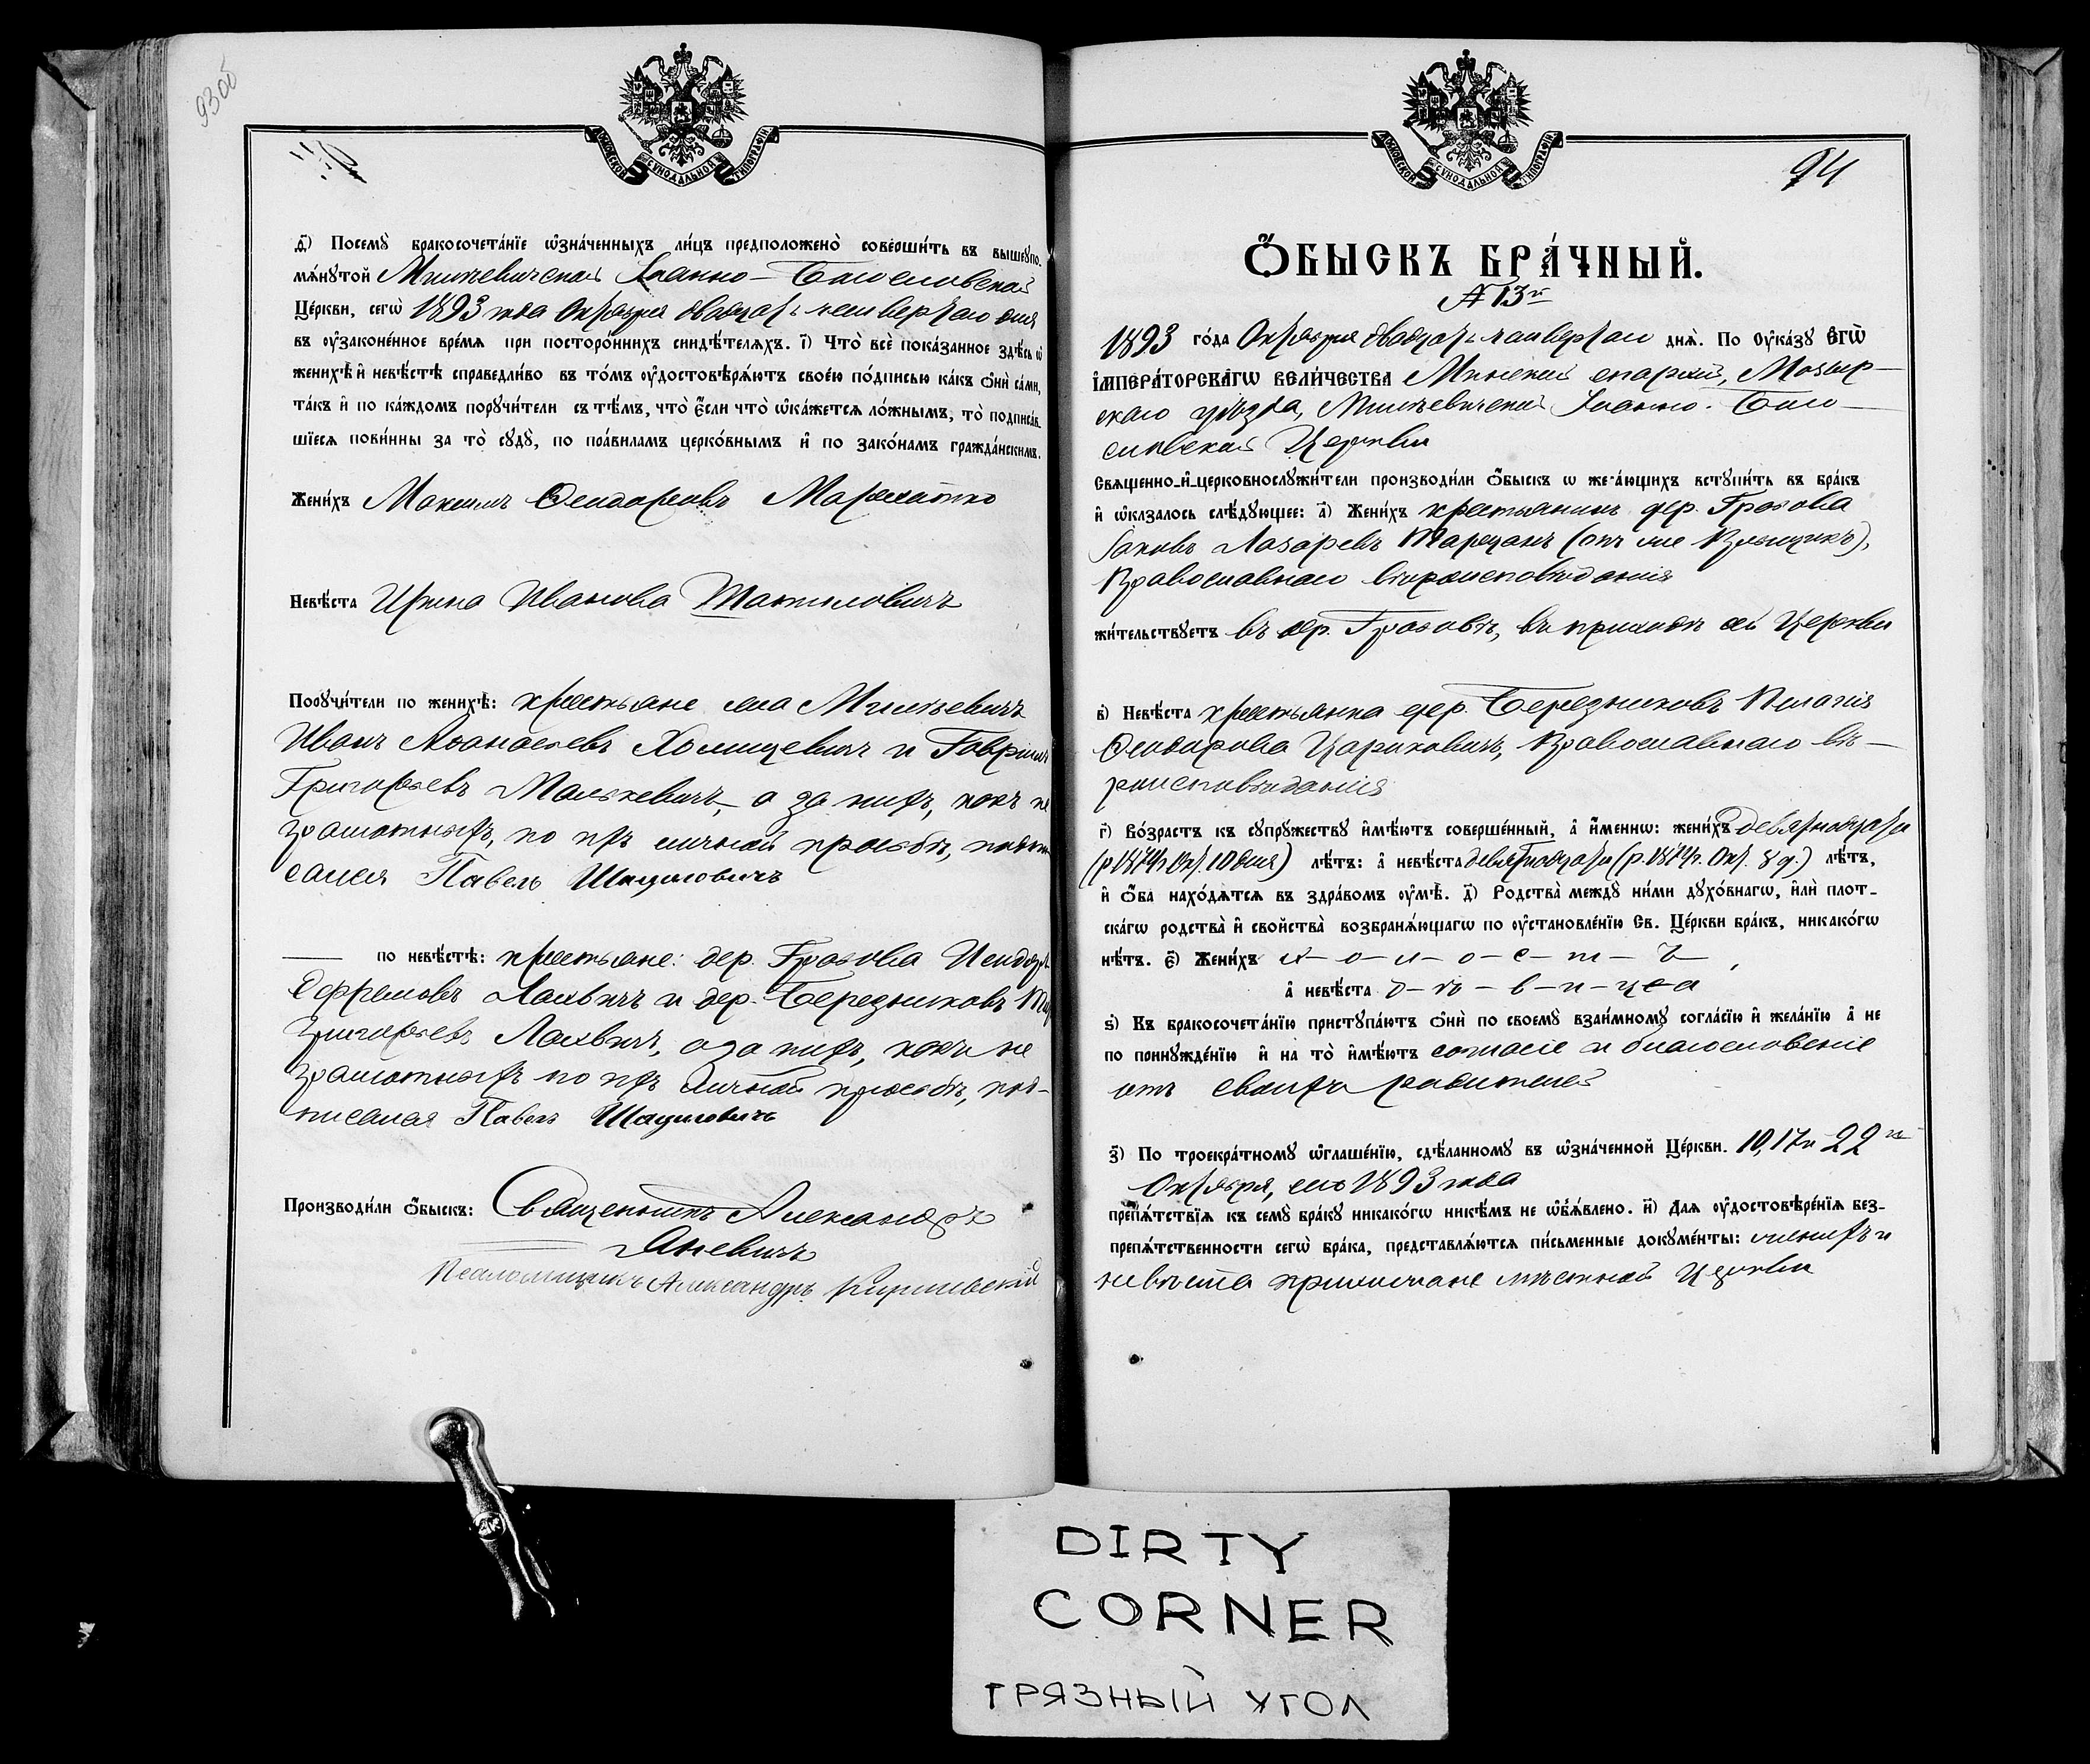 93об
МОСКОВСКОЙ СУНОДАЛЬНОЙ ТИПОГРАФІИ
д҃) Посемꙋ̀ бракосочета́нїе ѡ҆зна́ченныхъ ли́цъ предположено̀ соверши́ть въ вышеꙋпо-
мѧ́нꙋтой Милевичской Іоанно-Богословской
Це́ркви, сегѡ̀ 1893 года Октября двадцать четвертаго дня
въ ᲂу҆законе́нное вре́мѧ при посторо́ннихъ свидѣ́телѧхъ. і҃) Что̀ всѐ пока́занное здѣ́сь ѡ
женихѣ̀ и҆ невѣ́стѣ справедли́во въ то́мъ ᲂу҆достовѣрѧ́ютъ свое́ю по́дписью ка́къ ѻ҆нѝ са́ми,
та́къ и҆ по ка́ждомъ порꙋчи́тели съ тѣ́мъ, что̀ є҆́сли что̀ ѡ҆ка́жетсѧ ло́жнымъ, то̀ подписа́в-
шїесѧ пови́нны за то̀ сꙋдꙋ̀, по пра́виламъ церко́внымъ и҆ по зако́намъ гражда́нскимъ.
Жени́хъ Максимъ Ѳеодоровъ Марохатко
Невѣ́ста Ирина Иванова
Порꙋчи́тели по женихѣ̀: крестьяне села Милевичъ
Иванъ Аѳанасьевъ Холицевичъ и Гавріилъ
Григорьевъ Малькевичъ, а за нихъ, какъ не
грамотныхъ, по ихъ личной просьбѣ, подпи-
сался Павелъ Шациловичъ
по невѣ́стѣ: крестьяне: дер. Грабова Исидоръ
Ефремовъ Лахвичъ и дер. Березняковъ
Григорьевъ Лахвичъ, а за нихъ, какъ не
грамотныхъ по ихъ личной просьбѣ, под-
писался Павелъ Шациловичъ
Производи́ли ѻ҆́быскъ: Священникъ Александръ
Яневичъ
Псаломщикъ Александръ
МОСКОВСКОЙ СУНОДАЛЬНОЙ ТИПОГРАФІИ
94
ѺБЫСКЪ БРА́ЧНЫЙ.
№ 13й
1893 го́да Октября двадцать четвертаго днѧ̀. По ᲂу҆ка́зꙋ ЄГѠ̀
І҆МПЕРА́ТОРСКАГѠ ВЕЛИ́ЧЕСТВА Минской епархіи, Мозыр-
скаго уѣзда, Милевичской Іоанно-Бого-
словской Церкви
Свѧщенно-и҆-церковнослꙋжи́тели производи́ли ѻ҆́быскъ ѡ жела́ющихъ встꙋпи́ть въ бра́къ
и҆ ѡ҆казалось слѣ́дꙋющее: а҃) Жени́хъ крестьянинъ дер. Грабова
Іаковъ Лазаревъ Тарцанъ (онъ же),
Православнаго вѣроисповѣданія
жи́тельствꙋетъ въ дер. Грабовѣ, въ приходѣ сей Церкви
в҃) Невѣ́ста крестьянка дер. Березняковъ Пелагія
Ѳеодорова Царикевичъ, Православнаго вѣ-
роисповѣданія
г҃) Во́зрастъ къ сꙋпрꙋ́жествꙋ и҆мѣ́ютъ соверше́нный, а҆ и҆́меннѡ: жени́хъ девятнадцати
(р. 1874 г. Окт. 10 дня) лѣ́тъ: а҆ невѣ́ста девятнадцати (р. 1874 г. Окт. 8 д.) лѣ́тъ,
и҆ ѻ҆́ба нахо́дѧтсѧ въ здра́вомъ ᲂу҆мѣ̀. д҃) Родства̀ междꙋ̀ ни́ми дꙋхо́внагѡ, и҆лѝ плот-
ска́гѡ родства̀ и҆ свойства̀ возбранѧ́ющагѡ по ᲂу҆становле́нїю Св. Це́ркви бра́къ, никако́гѡ
нѣ́тъ. є҃) Жени́хъ х-о-л-о-с-т-ъ,
а҆ невѣ́ста д-ѣ-в-и-ц-а
ѕ҃) Къ бракосочета́нїю пристꙋпа́ютъ ѻ҆нѝ по своемꙋ̀ взаи́мномꙋ согла́сїю и҆ жела́нїю а҆ не
по принꙋжде́нїю и҆ на то̀ и҆мѣ́ютъ согласіе и благословеніе
отъ своихъ родителей
з҃) По троекра́тномꙋ ѡ҆глаше́нїю, сдѣ́ланномꙋ въ ѡ҆зна́ченной Це́ркви. 10, 17 и 22 го
Октября, сего 1893 года
препѧ́тствїѧ къ семꙋ̀ бра́кꙋ никако́гѡ никѣ́мъ не ѡ҆б̾ѧ́влено. и҃) Длѧ ᲂу҆достовѣре́нїѧ без-
препѧ́тственности сегѡ̀ бра́ка, представлѧ́ютсѧ пи́сьменные докꙋме́нты: женихъ и
невѣста прихожане мѣстной Церкви
DIRTY
CORNER
ГРЯЗНЫЙ УГОЛ